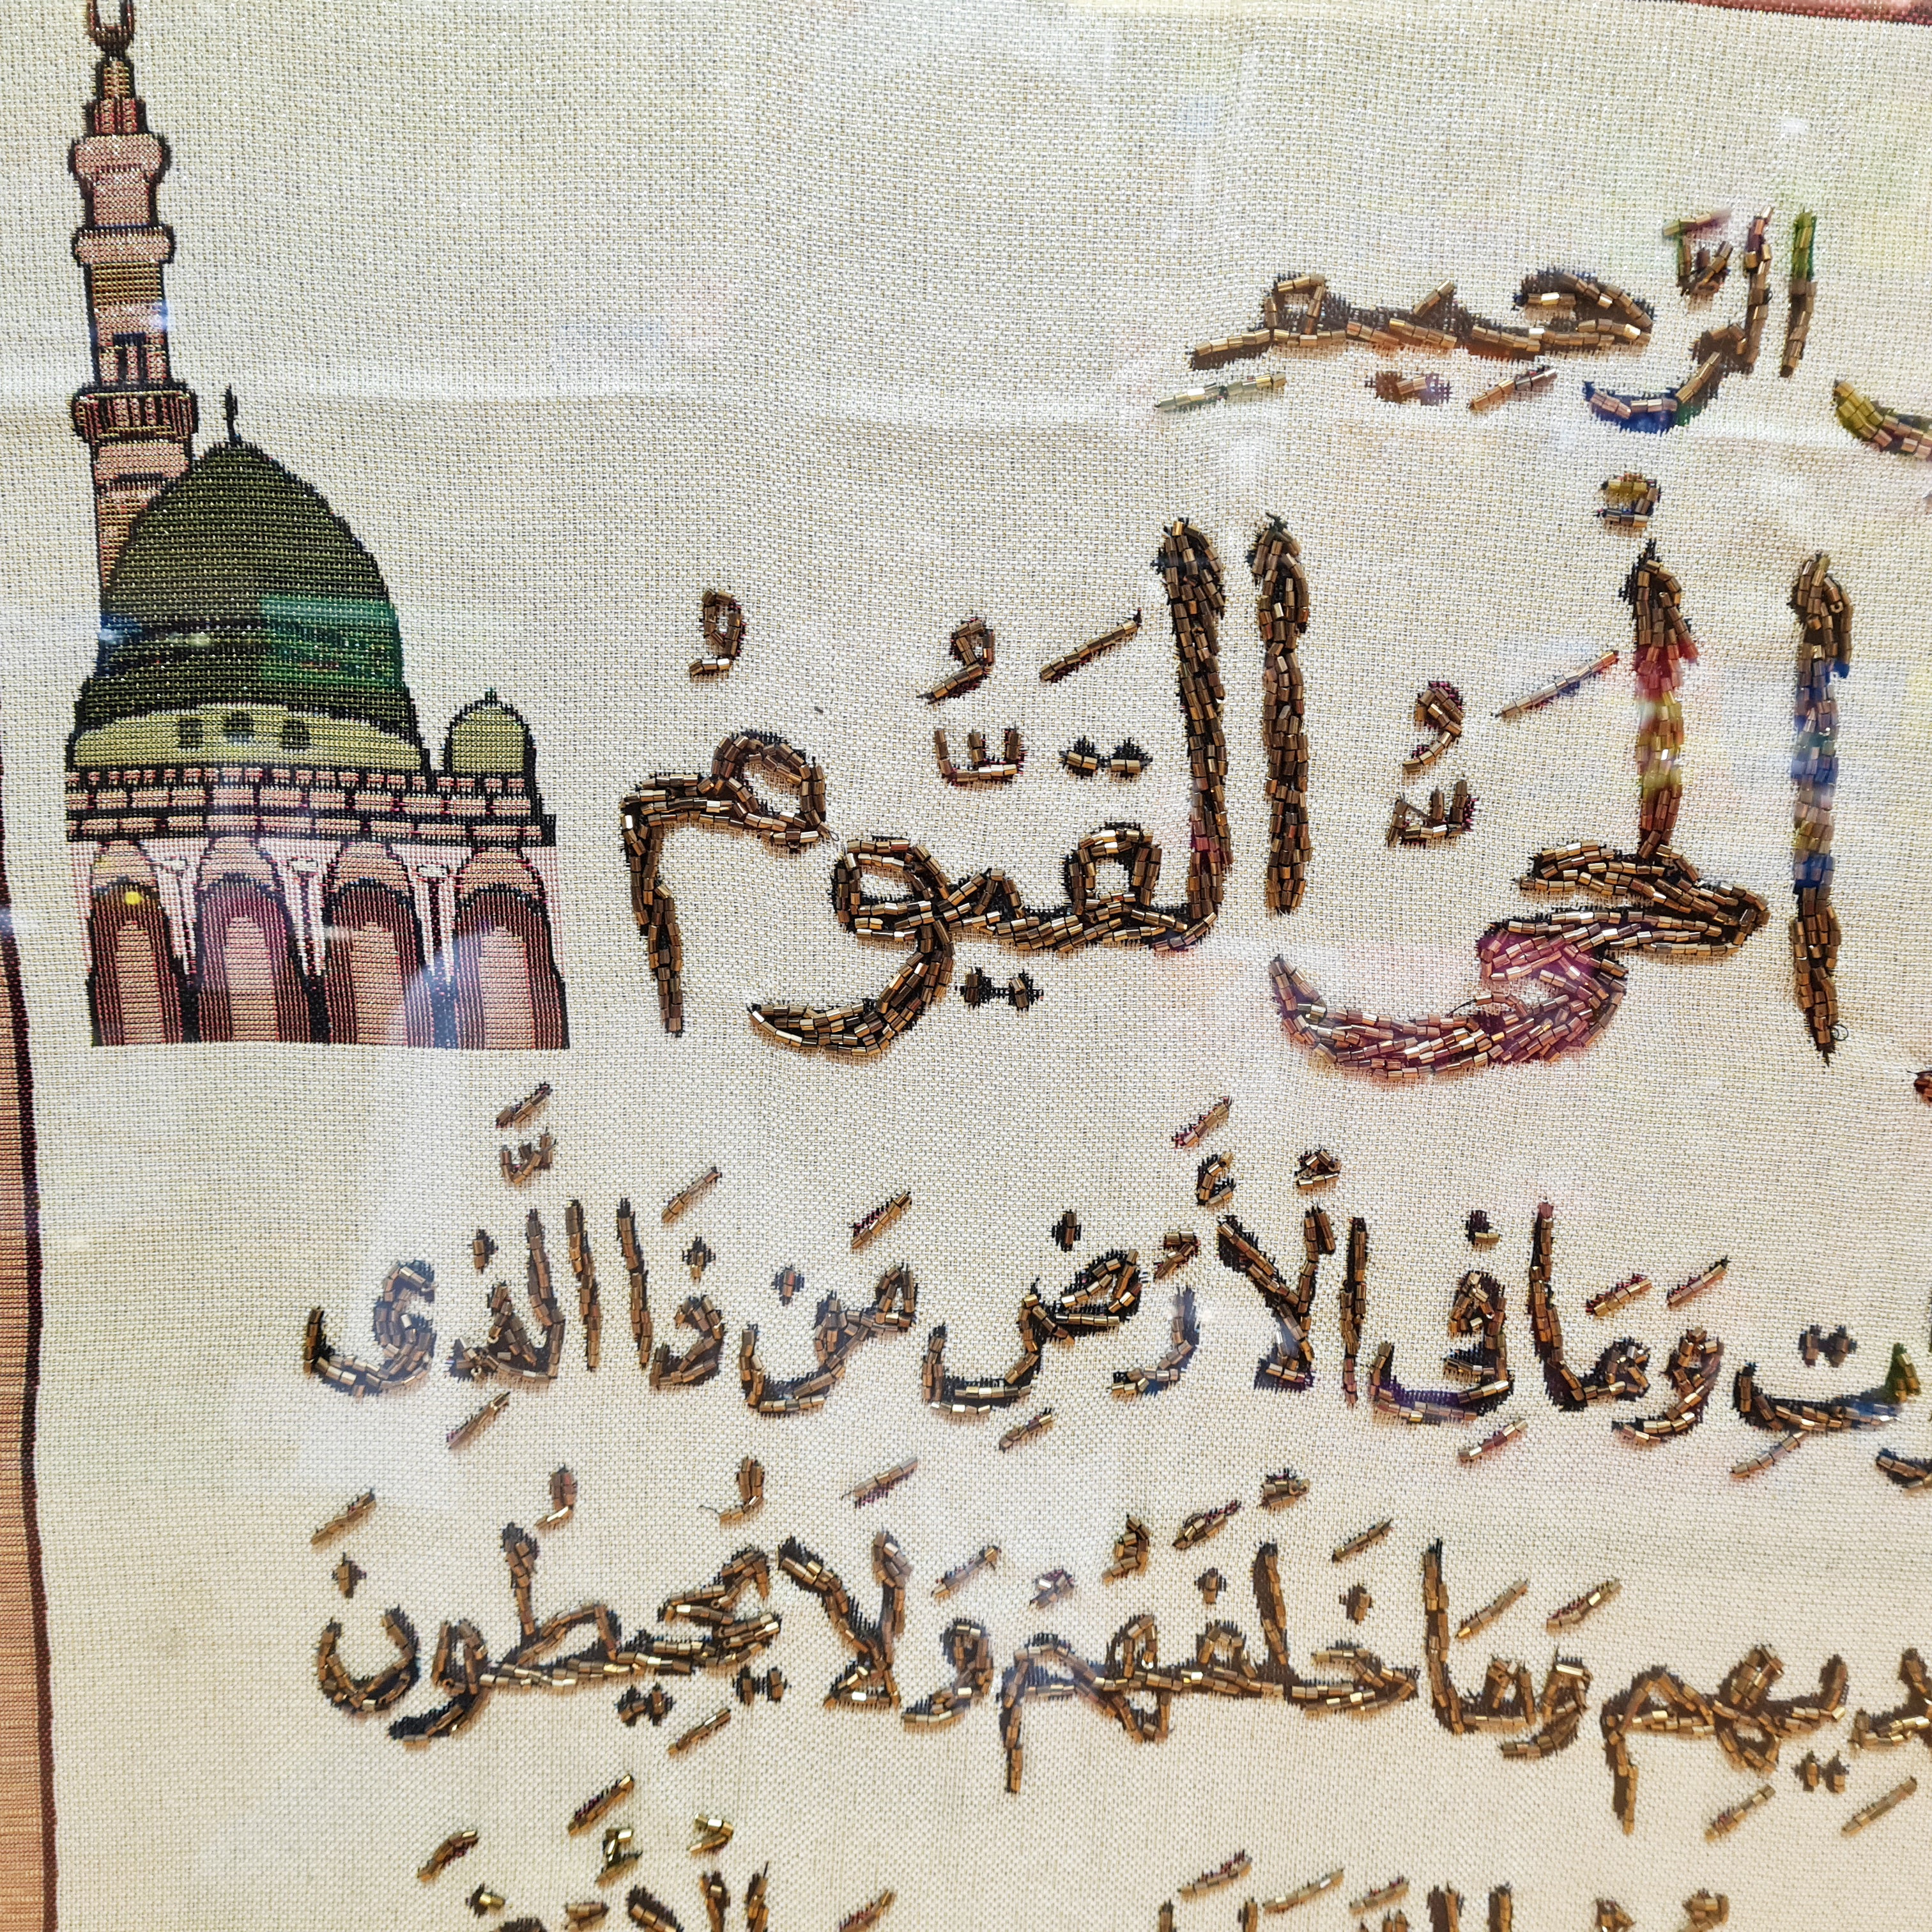 الرَّحِيمِ
اَلْحَيُّ الْقَيُّومُ
وَمَا فِى الْأَرْضِ مَن ذَا الَّذِى
وَمَا خَلْفَهُمْ وَلَا يُحِيطُونَ